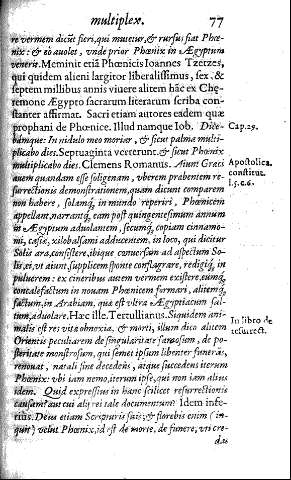 multiplex. 77
re vermem dicũt fieri, qui mutetur, & rursus fiat Phœ-
nix: & eò auolet, vnde prior Phœnix in Ægyptum
venerit. Meminit etiã Phœnicis Ioannes Tzetzes,
qui quidem alieni largitor liberalissimus, sex, &
septem millibus annis viuere alitem hãc ex Chę-
remone Ægypto sacrarum literarum scriba con-
stanter affirmat. Sacri etiam autores eadem quæ
prophani de Phœnice. Illud namque Iob. Dice-
bamque: In nidulo meo moriar, & sicut palma multi-
plicabo dies. Septuaginta verterunt. & sicut Phœnix
multiplicabo dies. Clemens Romanus. Aiunt Græci
auem quandam esse
surrectionis demonstrationem, quam dicunt comparem
non habere, solamq́; in mundo reperiri, Phœnicem
appellant, narrantq́; eam post quingentesimum annum
in Ægyptum aduolantem, secumq́; copiam cinnamo-
mi, casiæ, xilobalsami adducentem, in loco, qui dicitur
Solis ara, consistere, ibique conuersum ad aspectum So-
lis, vt aiunt, supplicem sponte conflagrare, redigiq́; in
puluerem: ex cineribus autem vermem existere, eumq́;
concalefactum in nouam Phœnicem formari, alitemq́;
factum, in Arabiam, quæ est vltra Ægyptiacum sal-
tum, aduolare. Hæc ille. Tertullianus. Siquidem ani-
malis est res vitæ obnoxia, & morti, illum dico alitem
Orientis peculiarem de singularitate famosum, de po-
steritate monstrosum, qui semet ipsum libenter funerãs,
renouat, natali fine decedens, atque succedens iterum
Phœnix: vbi iam nemo, iterum ipse, qui non iam alius
idem. Quid expressius in hanc scilicet resurrectionis
causam? aut cui alij rei tale documentum? Idem infe-
rius. Deus etiam Scripturis suis; & florebis enim (in-
quit) velut Phœnix, id est de morte, de funere, vti cre-
das
Cap. 29.
Apostolica.
constitut.
l. 5. c. 6.
In libro de
resurect.